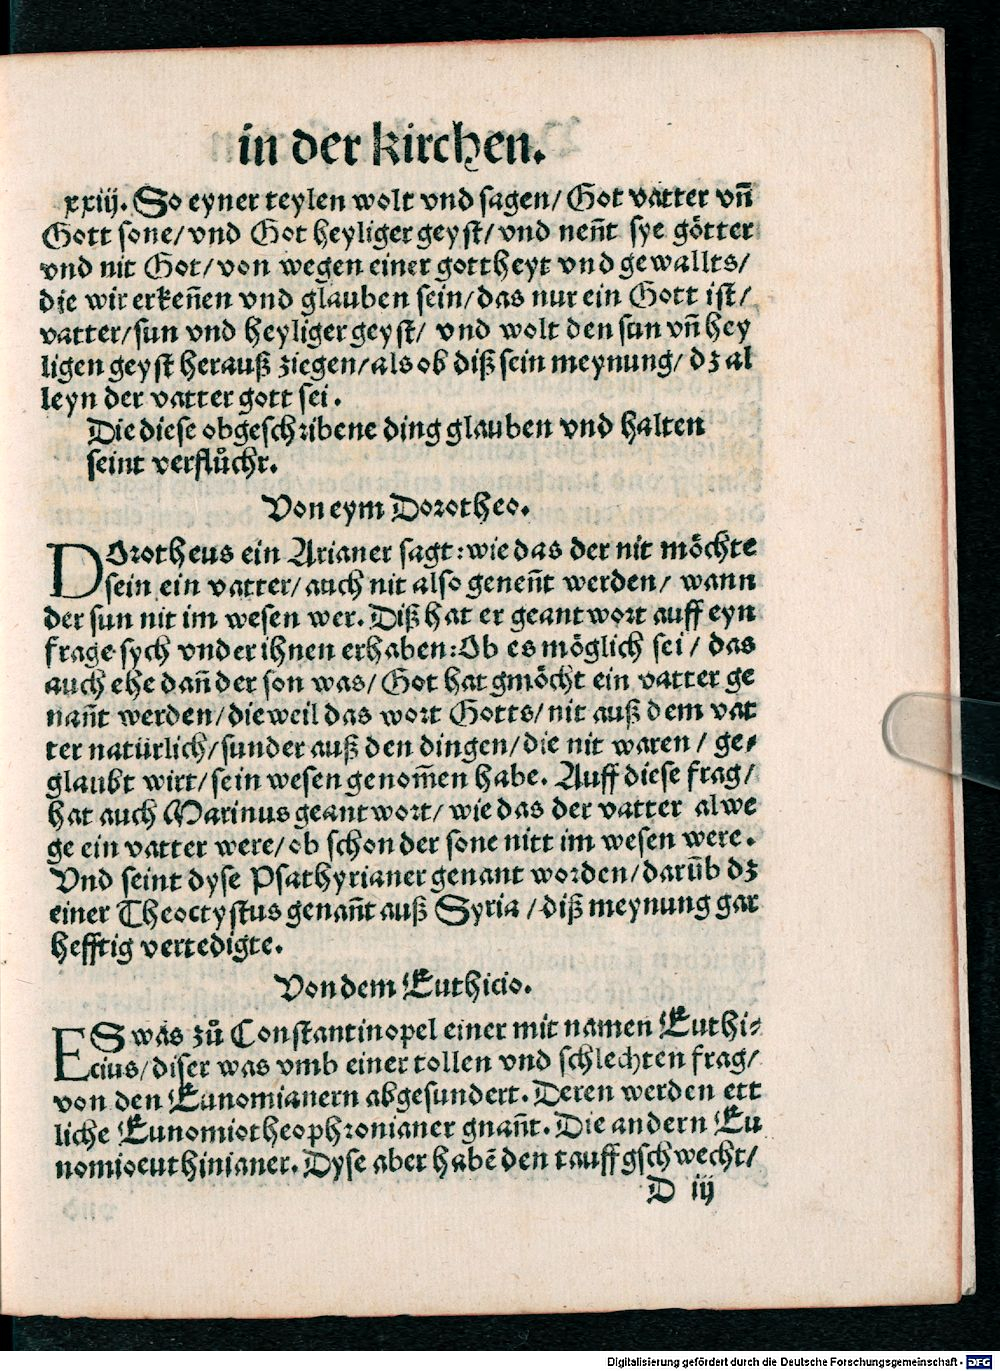 in der kirchen.
xxiij. So eyner teylen wolt vnd sagen/ Got vatter vn̄
Gott sone/ vnd Got heyliger geyst/ vnd nen̄t sye götter
vnd nit Got/ von wegen einer gottheyt vnd gewallts/
die wir erken̄en vnd glauben sein/ das nur ein Gott ist/
vatter/ sun vnd heyliger geyst/ vnd wolt den sun vn̄ hey
ligen geyst herauß ziegen/ als ob diß sein meynung/ dz al
leyn der vatter gott sei.
Die diese obgeschribene ding glauben vnd halten
seint verflůchr.
Von eym Dorotheo.
DOrotheus ein Arianer sagt: wie das der nit möchte
sein ein vatter/ auch nit also genen̄t werden/ wann
der sun nit im wesen wer. Diß hat er geantwort auff eyn
frage sych vnder ihnen erhaben: Ob es möglich sei/ das
auch ehe dan̄ der son was/ Got hat gmöcht ein vatter ge
nan̄t werden/ die weil das wort Gotts/ nit auß dem vat
ter natürlich/ sunder auß den dingen/ die nit waren/ ge-
glaubt wirt/ sein wesen genom̄en habe. Auff diese frag/
hat auch Marinus geantwort/ wie das der vatter alwe
ge ein vatter were/ ob schon der sone nitt im wesen were.
Vnd seint dyse Psathyrianer genant worden/ darūb dz
einer Theoctystus genan̄t auß Syria/ diß meynung gar
hefftig vertedigte.
Von dem Euthicio.
ES was zů Constantinopel einer mit namen Euthi-
cius/ diser was vmb einer tollen vnd schlechten frag/
von den Eunomianern abgesundert. Deren werden ett
liche Eunomiotheophronianer gnan̄t. Die andern Eu
nomioeuthinianer. Dyse aber habē den tauff gschwecht/
D iij
Digitalisierung gefördert durch die Deutsche Forschungsgemeinschaft - DFG